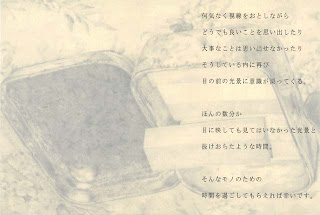 何気なく視線をおとしながら
どうでも良いことを思い出したり
大事なことは思い出せなかったり
そうしている内に再び
目の前の光景に意識が戻ってくる。
ほんの数分か
目に映しても見てはいなかった光景と
抜けおちたような時間。
そんなモノのための
時間を過ごしてもらえれば幸いです。